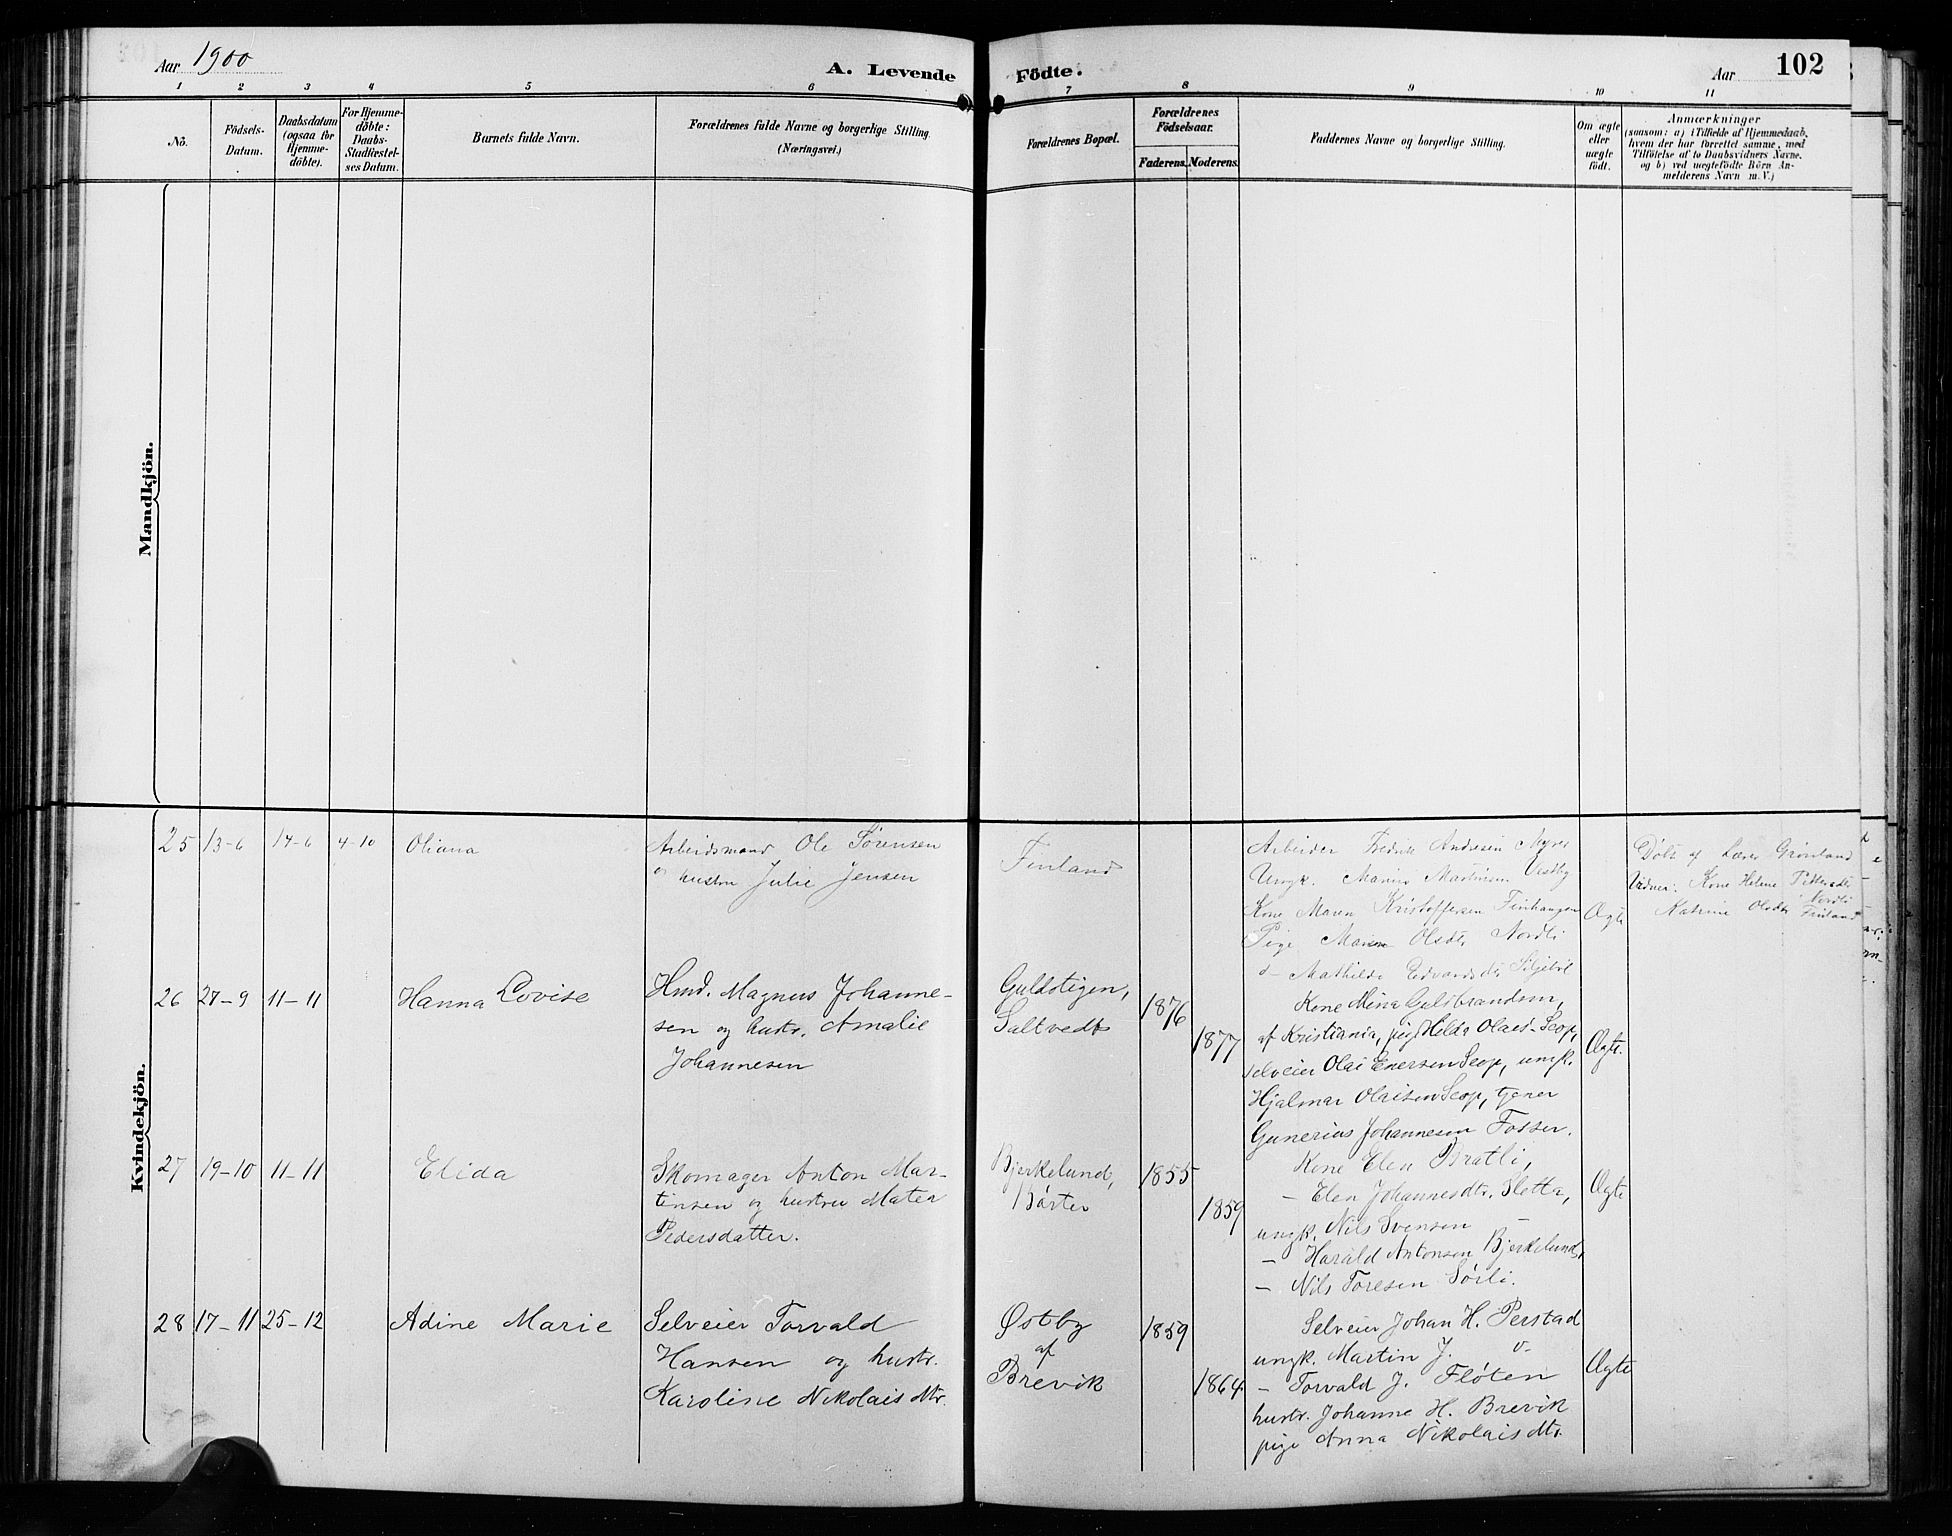 Aar 1900
A. Levende
Födte.
Aar
102
1 2 3 4 5 6 7 8 9 10 11
No.
Födsels-
Datum.
Daabsdatum
(ogsaa for
Hjemme-
döbte).
For Hjemme-
döbte:
Daabs-
Stadfæstel-
ses Datum.
Barnets fulde Navn.
Forældrenes fulde Navne og borgerlige Stilling.
(Næringsvei.)
Forældrenes Bopæl.
Forældrenes
Födselsaar.
Faderens. Moderens.
Faddernes Navne og borgerlige Stilling.
Om ægte
eller
uægte
födt.
Anmærkninger
(saasom: a) i Tilfælde af Hjemmedaab,
hvem der har forrettet samme, med
Tilföielse af to Daabsvidners Navne,
og b) ved uægtefödte Börn An-
melderens Navn m. V.)
Mandkjön.
Kvindekjön.
25 13-6 14-6 4-10 Oliana
Arbeidsmand Ole Sørensen
og hustru Julie Jensen
Finland
Arbeider Fredrik Andresen Myrer
Ungk. Marius Martinsen Vestby
Kone Maren Kristoffersen Finhaugen
Pige Maren Olsdtr Nordli
d- Mathilde Edvardsdtr
Ægte
Döbt af Lærer Grønland
Vidner: Kone Helene Pettersdtr
Nordli
Katrine Olsdtr Finland
26 27-9 11-11 Hanna Lovise
Hmd. Magnus Johanne-
sen og hustr. Amalie
Johannesen
Guldstigen,
Saltvedt
1876
1877
Kone Mina Gulbrandsen,
af Kristiania, pige Hilda Olaisd. Scop,
selveier Olai Enersen Scop, ungk.
Hjalmar Olaisen Scop, tjener
Gunerius Johannesen Fosser.
Ægte.
27 19-10 11-11 Elida
Skomager Anton Mar-
tinsen og hustru Matea
Pedersdatter.
Bjerkelund,
Børter
1855
1859
Kone Elen Bratli,
- Elen Johannesdtr. Sletta,
ungk. Nils Svensen -
- Harald Antonsen Bjerkelund,
- Nils Toresen Sørli.
Ægte
28 17-11 25-12 Adine Marie
Selveier Torvald
Hansen og hustr.
Karoline Nikolaisdtr.
Østby
af
Brevik
1859
1864
Selveier Johan H. Perstad
ungk. Martin J. d-
- Torvald J. Fløten
hustr. Johanne H. Brevik
pige Anna Nikolaisdtr.
Ægte